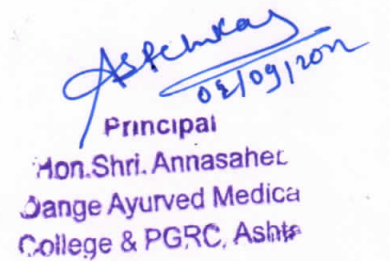 Principal
Hon.Shri. Annasaheb
Dange Ayurved Medica
College & PGRC, Ashta